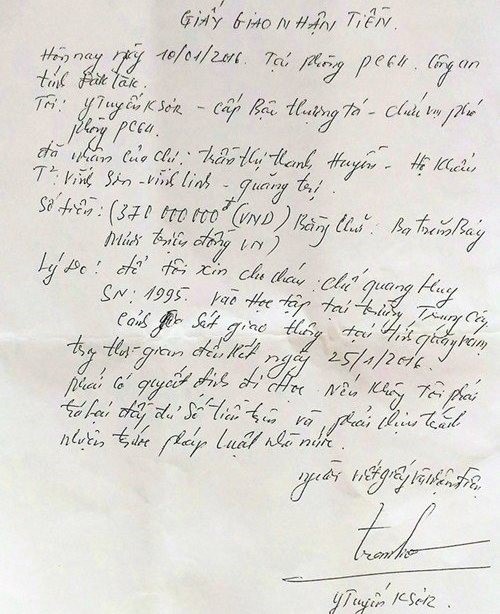 GIẤY GIAO NHẬN TIỀN.
Hôm nay ngày 10/01/2016. Tại phòng PC64. Công an
tỉnh Đắk Lăk.
Tôi: YTuyến KSơR - cấp Bậc thượng tá - chức vụ phó
phòng PC64.
đã nhận của chị: Trần Thị Thanh Huyền - Hộ Khẩu
T²: Vĩnh Sơn - Vĩnh Linh - quảng trị.
Số tiền: (370 000 000đ (VND) Bằng chữ: Ba trăm Bảy
mươi triệu đồng VN)
Lý do: để tôi xin cho cháu: chế quang Huy
SN: 1995. vào học tập tại trường Trung Cấp
Cảnh Sát giao thông tại
thời gian đến hết ngày 25/1/2016.
phải có quyết định đi học. Nếu không tôi phải
trả lại đầy đủ số tiền trên và phải chịu trách
nhiệm trước pháp luật nhà nước.
người viết giấy và nhận tiền
YTuyến KSơR.